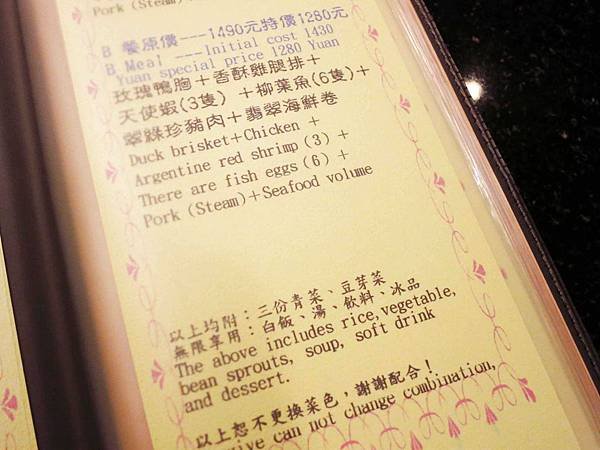 Pork (Steam)
B 餐原價---1490元特價1280元
B Meal ---Initial cost 1430
Yuan special price 1280 Yuan
玫瑰鴨胸＋香酥雞腿排＋
天使蝦(3隻) ＋柳葉魚(6隻)＋
翠綠珍豬肉＋翡翠海鮮卷
Duck brisket＋Chicken ＋
Argentine red shrimp (3) ＋
There are fish eggs (6) ＋
Pork (Steam)＋Seafood volume
以上均附：三份青菜、豆芽菜
無限享用：白飯、湯、飲料、冰品
The above includes rice,vegetable,
bean sprouts, soup, soft drink
and dessert.
以上恕不更換菜色，謝謝配合！
give can not change combination,